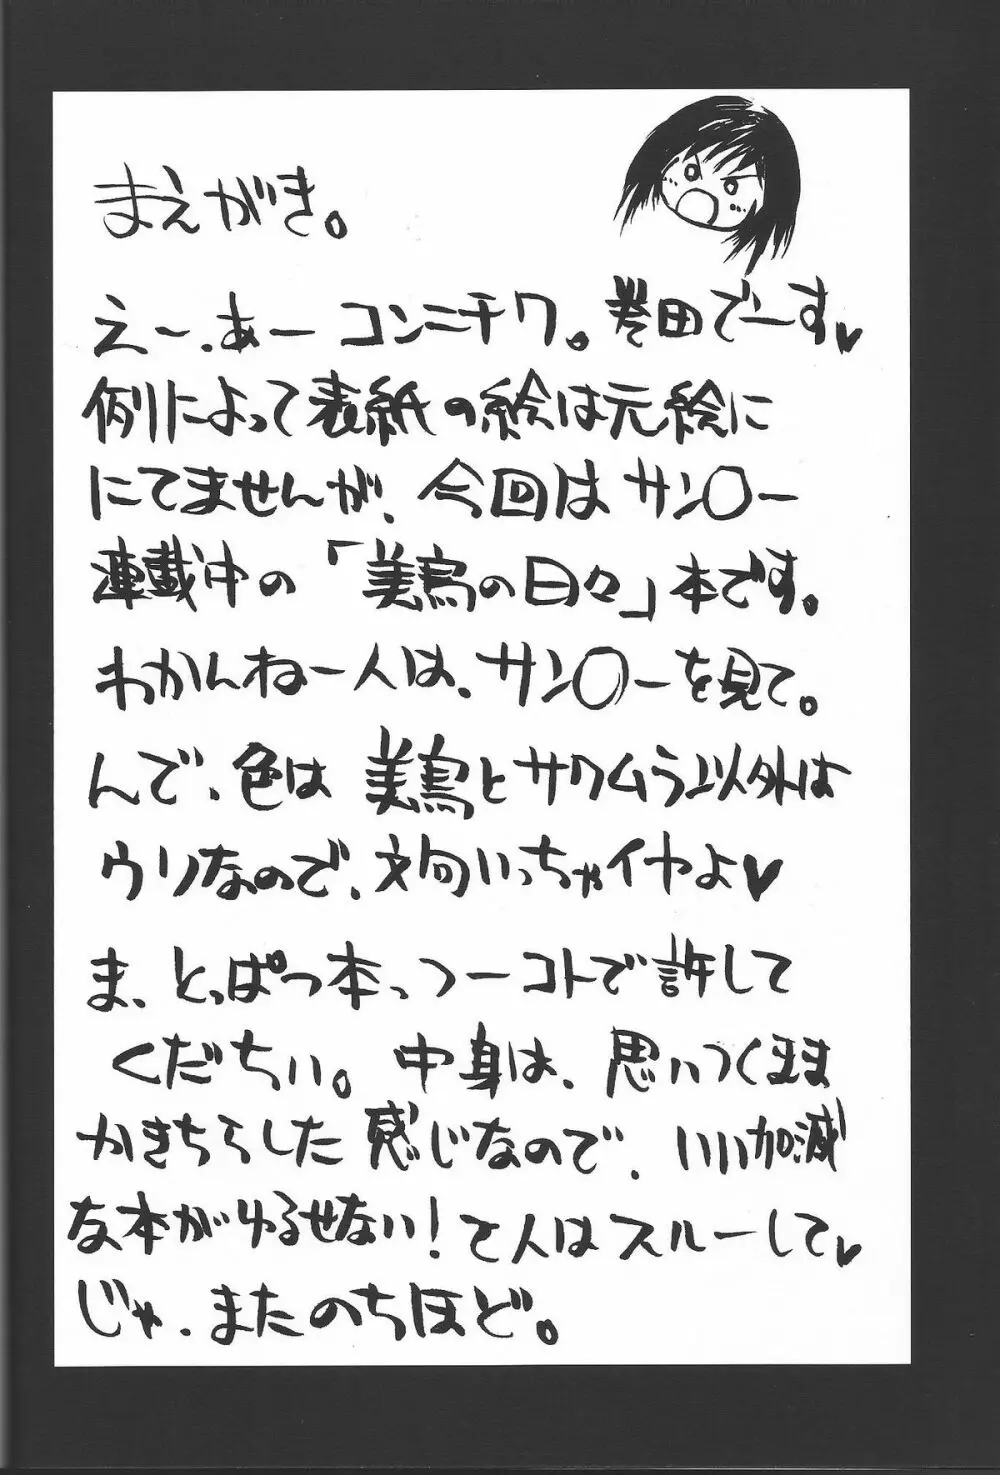 まえがき。
えー、あー コンニチワ。巻田でーす♥
例によって表紙の絵は元絵に
にてませんが、今回はサン〇ー
連載中の「美鳥の日々」本です。
わかんねー人は、サン〇ーを見て。
んで、色は美鳥とサワムラ以外は
ウソなので、文句いっちゃイヤよ♥
ま、とっぱつ本っつーコトで許して
くだちい。中身は、思いつくまま
かきちらした感じなので、いい加減
な本がゆるせない!て人はスルーして♥
じゃ、またのちほど。